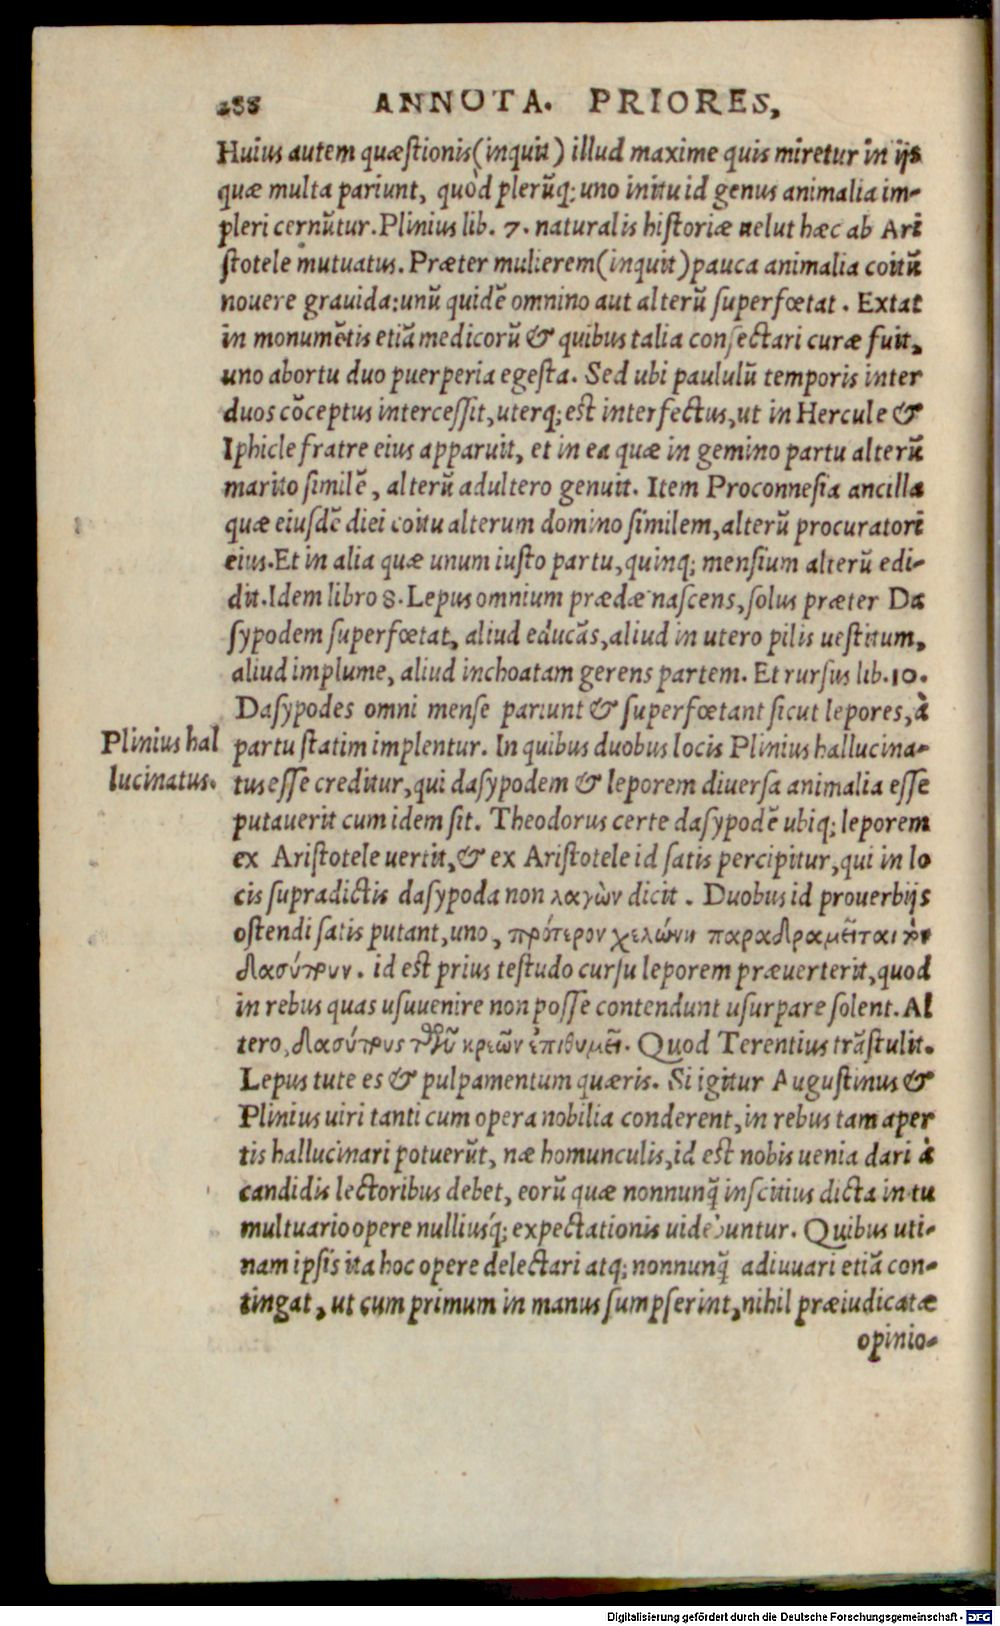 288 ANNOTA. PRIORES,
Huius autem quæstionis(inquit) illud maxime quis miretur in ijs
quæ multa pariunt, quòd plerũq; uno initu id genus animalia im-
pleri cernũtur. Plinius lib. 7. naturalis historiæ uelut hæc ab Ari
stotele mutuatus. Præter mulierem(inquit)pauca animalia coitũ
nouere grauida:unũ quidẽ omnino aut alterũ superfœtat. Extat
in monumẽtis etiã medicorũ & quibus talia consectari curæ fuit,
uno abortu duo puerperia egesta. Sed ubi paululũ temporis inter
duos cõceptus intercessit, uterq; est interfectus, ut in Hercule &
Iphicle fratre eius apparuit, et in ea quæ in gemino partu alterũ
marito similẽ, alterũ adultero genuit. Item Proconnesia ancilla
quæ eiusdẽ diei coitu alterum domino similem, alterũ procuratori
eius. Et in alia quæ unum iusto partu, quinq; mensium alterũ edi-
dit. Idem libro 8. Lepus omnium prædæ nascens, solus præter Da
sypodem superfœtat, aliud educãs, aliud in utero pilis uestitum,
aliud implume, aliud inchoatam gerens partem. Et rursus lib. 10.
Dasypodes omni mense pariunt & superfœtant sicut lepores, à
Plinius hal
lucinatus.
partu statim implentur. In quibus duobus locis Plinius hallucina-
tus esse creditur, qui dasypodem & leporem diuersa animalia esse
putauerit cum idem sit. Theodorus certe dasypodẽ ubiq; leporem
ex Aristotele uertit, & ex Aristotele id satis percipitur, qui in lo
cis supradictis dasypoda non λαγὼν dicit. Duobus id prouerbijs
ostendi satis putant, uno, πρότερον χελώνη παραδραμεῖται τὸν
δασύπουν. id est prius testudo cursu leporem præuerterit, quod
in rebus quas usuuenire non posse contendunt usurpare solent. Al
tero, δασύπους τοῦ κρεῶν ἐπιθυμεῖ. Quod Terentius trãstulit.
Lepus tute es & pulpamentum quæris. Si igitur Augustinus &
Plinius uiri tanti cum opera nobilia conderent, in rebus tam aper
tis hallucinari potuerũt, næ homunculis, id est nobis uenia dari à
candidis lectoribus debet, eorũ quæ nonnunq̃ inscitius dicta in tu
multuario opere nulliusq́; expectationis uidebuntur. Quibus uti-
nam ipsis ita hoc opere delectari atq; nonnunq̃ adiuuari etiã con-
tingat, ut cum primum in manus sumpserint, nihil præiudicatæ
opinio-
Digitalisierung gefördert durch die Deutsche Forschungsgemeinschaft - DFG